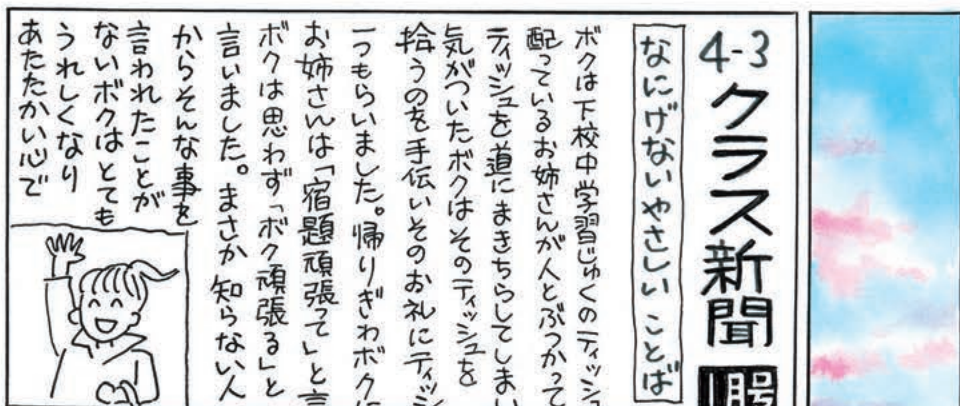 4-3クラス新聞
なにげないやさしいことば
ボクは下校中学習じゅくのティッシュ
配っているお姉さんが人とぶつかって
ティッシュを道にまきちらしてしまい
気がついたボクはそのティッシュを
拾うのを手伝いそのお礼にティッシ
一つもらいました。帰りぎわボクに
お姉さんは「宿題頑張って」と言
ボクは思わず「ボク頑張る」と
言いました。まさか知らない人
からそんな事を
言われたことが
ないボクはとても
うれしくなり
あたたかい心で